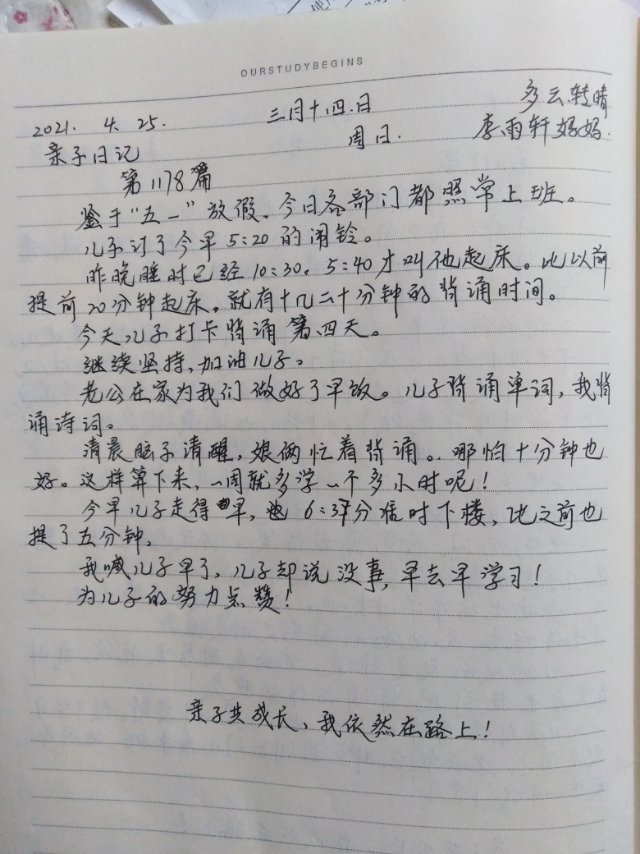 OURSTUDYBEGINS
2021. 4. 25. 三月十四.日 多云转晴
亲子日记 周日. 李雨轩妈妈.
第1178篇
鉴于“五一”放假、今日各部门都照常上班。
儿子订了今早5:20的闹铃。
昨晚睡时已经10:30、5:40才叫他起床。比以前
提前20分钟起床,就有十几二十分钟的背诵时间。
今天儿子打卡背诵第四天。
继续坚持,加油儿子。
老公在家为我们做好了早饭。儿子背诵单词,我背
诵诗词。
清晨脑子清醒,娘俩忙着背诵。哪怕十分钟也
好。这样算下来,一周就多学一个多小时呢!
今早儿子走得早, 6:3分准时下楼,比之前也
提了五分钟,
我喊儿子早了,儿子却说没事,早去早学习!
为儿子的努力点赞!
亲子共成长、我依然在路上!